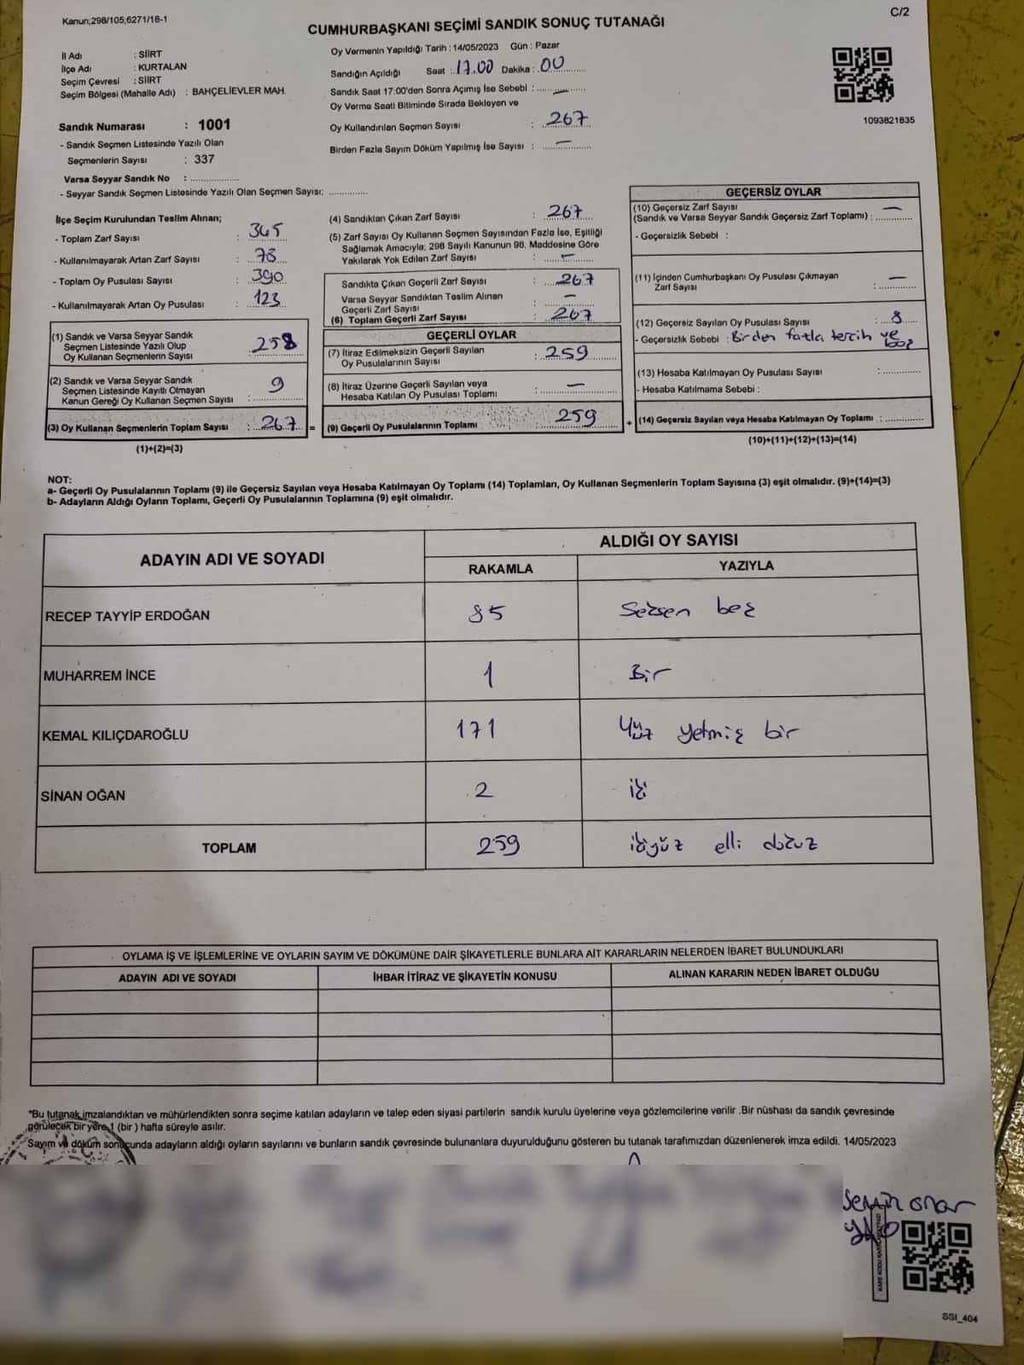 Kanun;298/105;6271/18-1
C/2
CUMHURBAŞKANI SEÇİMİ SANDIK SONUÇ TUTANAĞI
İl Adı : SİİRT
İlçe Adı : KURTALAN
Seçim Çevresi : SİİRT
Seçim Bölgesi (Mahalle Adı) : BAHÇELİEVLER MAH.
Sandık Numarası : 1001
- Sandık Seçmen Listesinde Yazılı Olan
Seçmenlerin Sayısı : 337
Varsa Seyyar Sandık No :
- Seyyar Sandık Seçmen Listesinde Yazılı Olan Seçmen Sayısı:
Oy Vermenin Yapıldığı Tarih : 14/05/2023 Gün : Pazar
Sandığın Açıldığı Saat : 17.00 Dakika : 00
Sandık Saat 17:00'den Sonra Açımış İse Sebebi : —
Oy Verme Saati Bitiminde Sırada Bekleyen ve
Oy Kullandırılan Seçmen Sayısı : 267
Birden Fazla Sayım Döküm Yapılmış İse Sayısı : —
1093821835
İlçe Seçim Kurulundan Teslim Alınan;
- Toplam Zarf Sayısı : 345
- Kullanılmayarak Artan Zarf Sayısı : 78
- Toplam Oy Pusulası Sayısı : 390
- Kullanılmayarak Artan Oy Pusulası : 123
(1) Sandık ve Varsa Seyyar Sandık
Seçmen Listesinde Yazılı Olup
Oy Kullanan Seçmenlerin Sayısı : 258
(2) Sandık ve Varsa Seyyar Sandık
Seçmen Listesinde Kayıtlı Olmayan
Kanun Gereği Oy Kullanan Seçmen Sayısı : 9
(3) Oy Kullanan Seçmenlerin Toplam Sayısı : 267 =
(1)+(2)=(3)
(4) Sandıktan Çıkan Zarf Sayısı : 267
(5) Zarf Sayısı Oy Kullanan Seçmen Sayısından Fazla İse, Eşitliği
Sağlamak Amacıyla; 298 Sayılı Kanunun 98. Maddesine Göre
Yakılarak Yok Edilen Zarf Sayısı : —
Sandıkta Çıkan Geçerli Zarf Sayısı : 267
Varsa Seyyar Sandıktan Teslim Alınan
Geçerli Zarf Sayısı : —
(6) Toplam Geçerli Zarf Sayısı : 267
GEÇERLİ OYLAR
(7) İtiraz Edilmeksizin Geçerli Sayılan
Oy Pusulalarının Sayısı : 259
(8) İtiraz Üzerine Geçerli Sayılan veya
Hesaba Katılan Oy Pusulası Toplamı : —
(9) Geçerli Oy Pusulalarının Toplamı : 259 +
GEÇERSİZ OYLAR
(10) Geçersiz Zarf Sayısı
(Sandık ve Varsa Seyyar Sandık Geçersiz Zarf Toplamı) : —
- Geçersizlik Sebebi :
(11) İçinden Cumhurbaşkanı Oy Pusulası Çıkmayan
Zarf Sayısı : —
(12) Geçersiz Sayılan Oy Pusulası Sayısı : 8
- Geçersizlik Sebebi : Birden fazla tercih ve
boş
(13) Hesaba Katılmayan Oy Pusulası Sayısı :
- Hesaba Katılmama Sebebi :
(14) Geçersiz Sayılan veya Hesaba Katılmayan Oy Toplamı :
(10)+(11)+(12)+(13)=(14)
NOT:
a- Geçerli Oy Pusulalarının Toplamı (9) ile Geçersiz Sayılan veya Hesaba Katılmayan Oy Toplamı (14) Toplamları, Oy Kullanan Seçmenlerin Toplam Sayısına (3) eşit olmalıdır. (9)+(14)=(3)
b- Adayların Aldığı Oyların Toplamı, Geçerli Oy Pusulalarının Toplamına (9) eşit olmalıdır.
ADAYIN ADI VE SOYADI
ALDIĞI OY SAYISI
RAKAMLA YAZIYLA
RECEP TAYYİP ERDOĞAN 85 Seksen beş
MUHARREM İNCE 1 Bir
KEMAL KILIÇDAROĞLU 171 Yüz yetmiş bir
SİNAN OĞAN 2 iki
TOPLAM 259 ikiyüz elli dokuz
OYLAMA İŞ VE İŞLEMLERİNE VE OYLARIN SAYIM VE DÖKÜMÜNE DAİR ŞİKAYETLERLE BUNLARA AİT KARARLARIN NELERDEN İBARET BULUNDUKLARI
ADAYIN ADI VE SOYADI İHBAR İTİRAZ VE ŞİKAYETİN KONUSU ALINAN KARARIN NEDEN İBARET OLDUĞU
*Bu tutanak imzalandıktan ve mühürlendikten sonra seçime katılan adayların ve talep eden siyasi partilerin sandık kurulu üyelerine veya gözlemcilerine verilir .Bir nüshası da sandık çevresinde
görülecek bir yere 1 (bir ) hafta süreyle asılır.
Sayım ve döküm sonucunda adayların aldığı oyların sayılarını ve bunların sandık çevresinde bulunanlara duyurulduğunu gösteren bu tutanak tarafımızdan düzenlenerek imza edildi. 14/05/2023
SSI_404